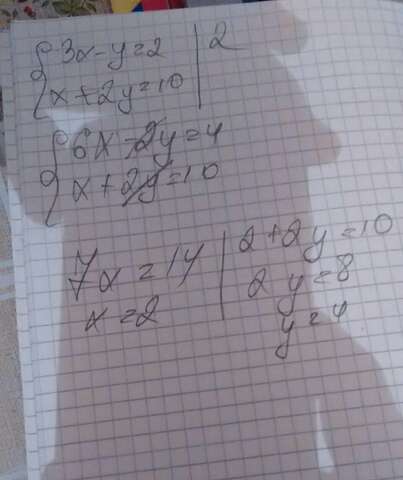 3x-y=2 | 2
x+2y=10
6x-2y=4
x+2y=10
7x=14
x=2
2+2y=10
2y=8
y=4